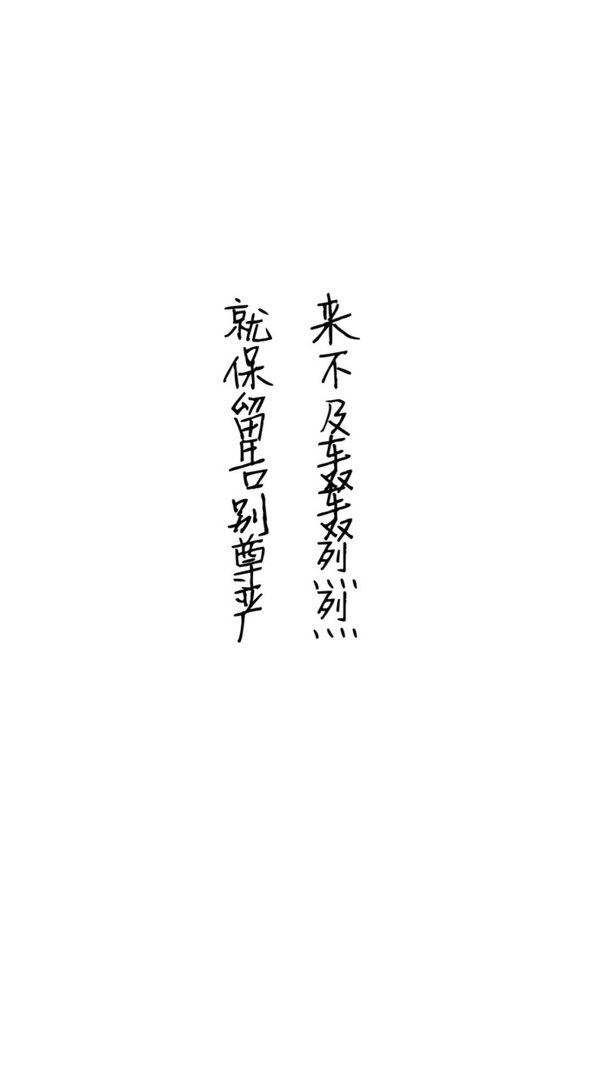 来不及轰轰烈烈
就保留告别尊严